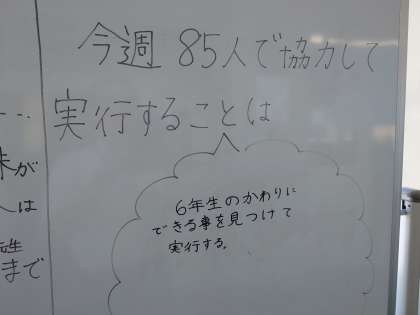 今週 85人で協力して
実行することは
6年生のかわりに
できる事を見つけて
実行する。
が
は
まで